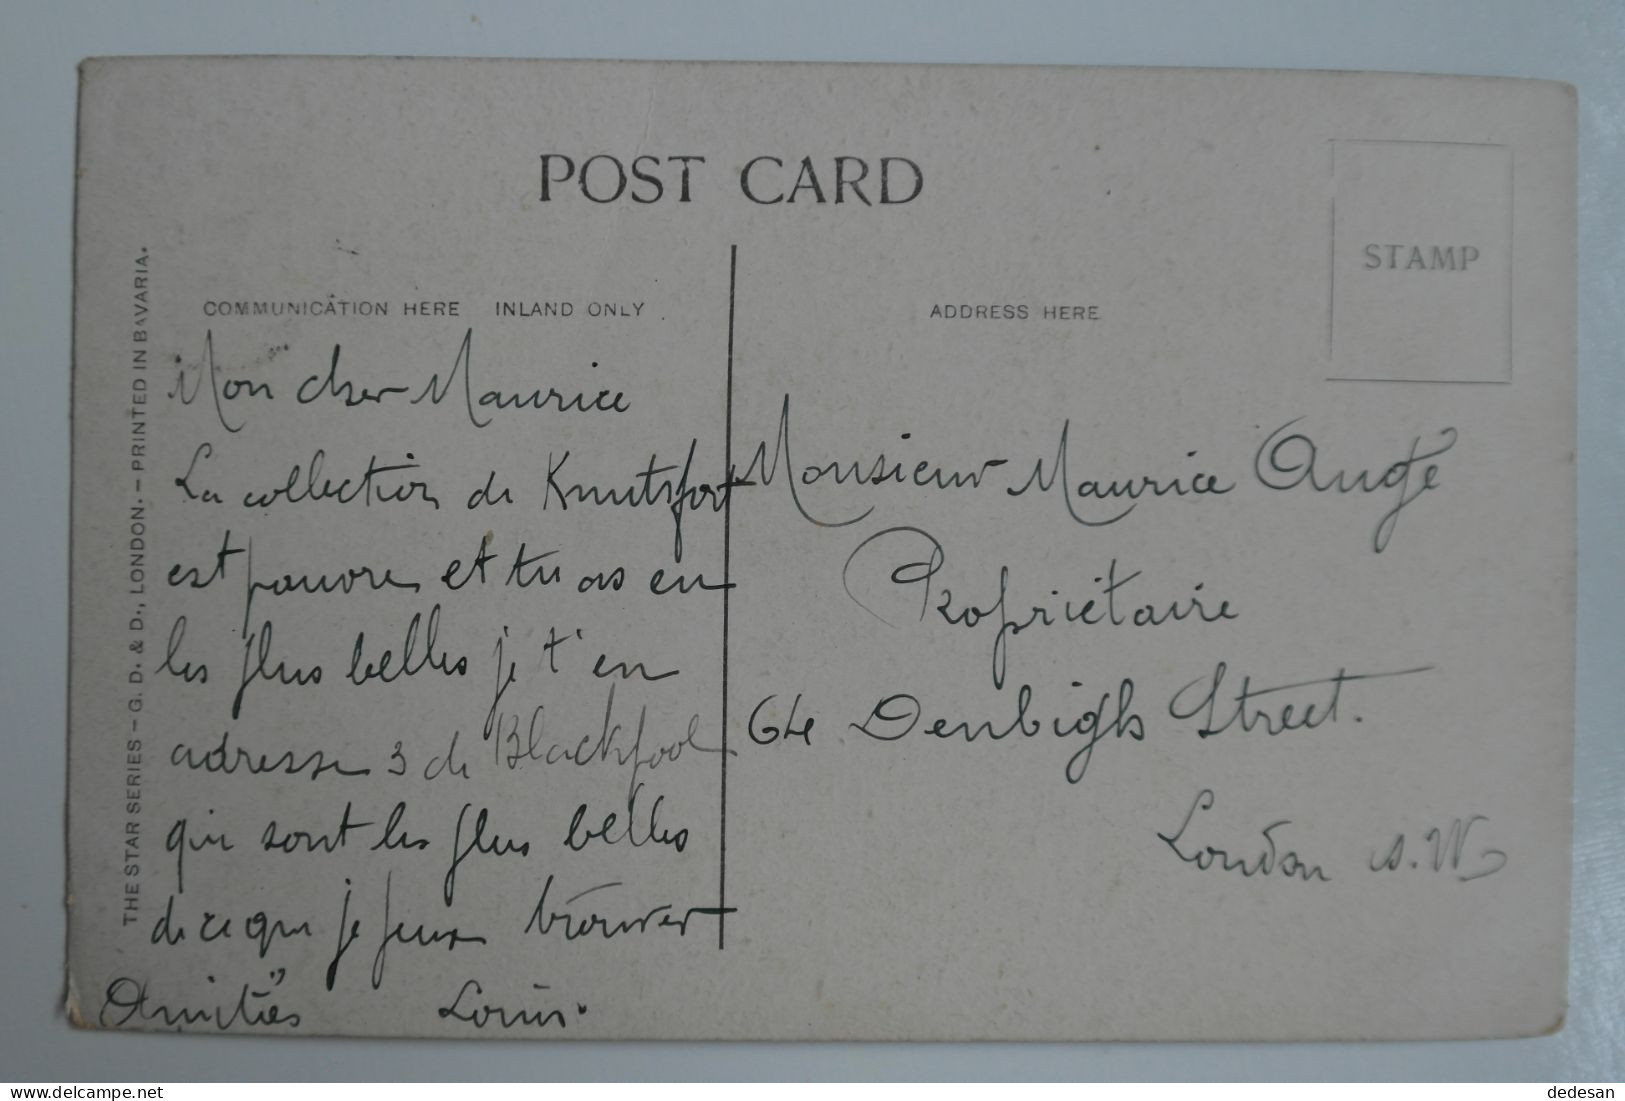 POST CARD
STAMP
COMMUNICATION HERE INLAND ONLY
ADDRESS HERE
THE STAR SERIES – G. D. & D., LONDON. – PRINTED IN BAVARIA.
Mon cher Maurice
La collection de Knutsfort
est pauvre et tu as en
les plus belles je t'en
adresse 3 de Blackpool
qui sont les plus belles
de ce que je peux trouver
Amitiés Louis.
Monsieur Maurice Augé
Propriétaire
64 Denbigh Street.
London S.W.
delcampe.net
dedesan